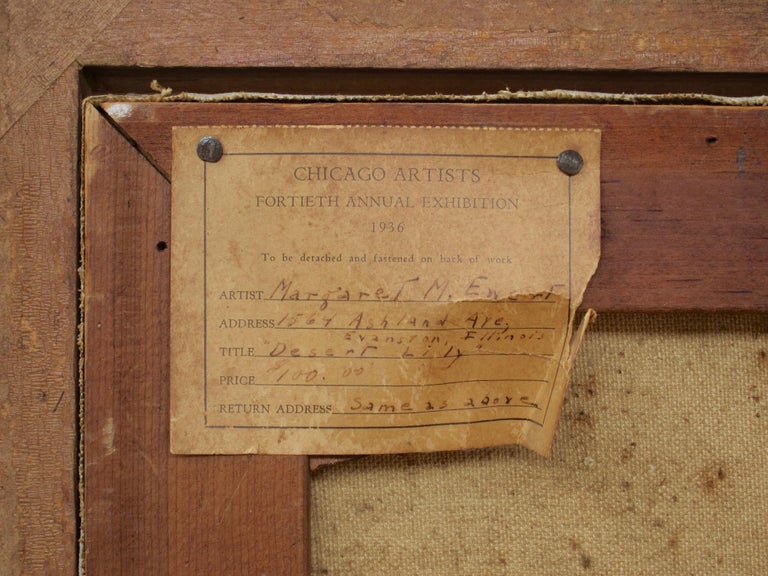 CHICAGO ARTISTS
FORTIETH ANNUAL EXHIBITION
1936
To be detached and fastened on back of work
ARTIST Margaret M. Ewert
ADDRESS 1564 Ashland Ave,
Evanston, Illinois
TITLE "Desert Lily"
PRICE $100.00
RETURN ADDRESS Same as above